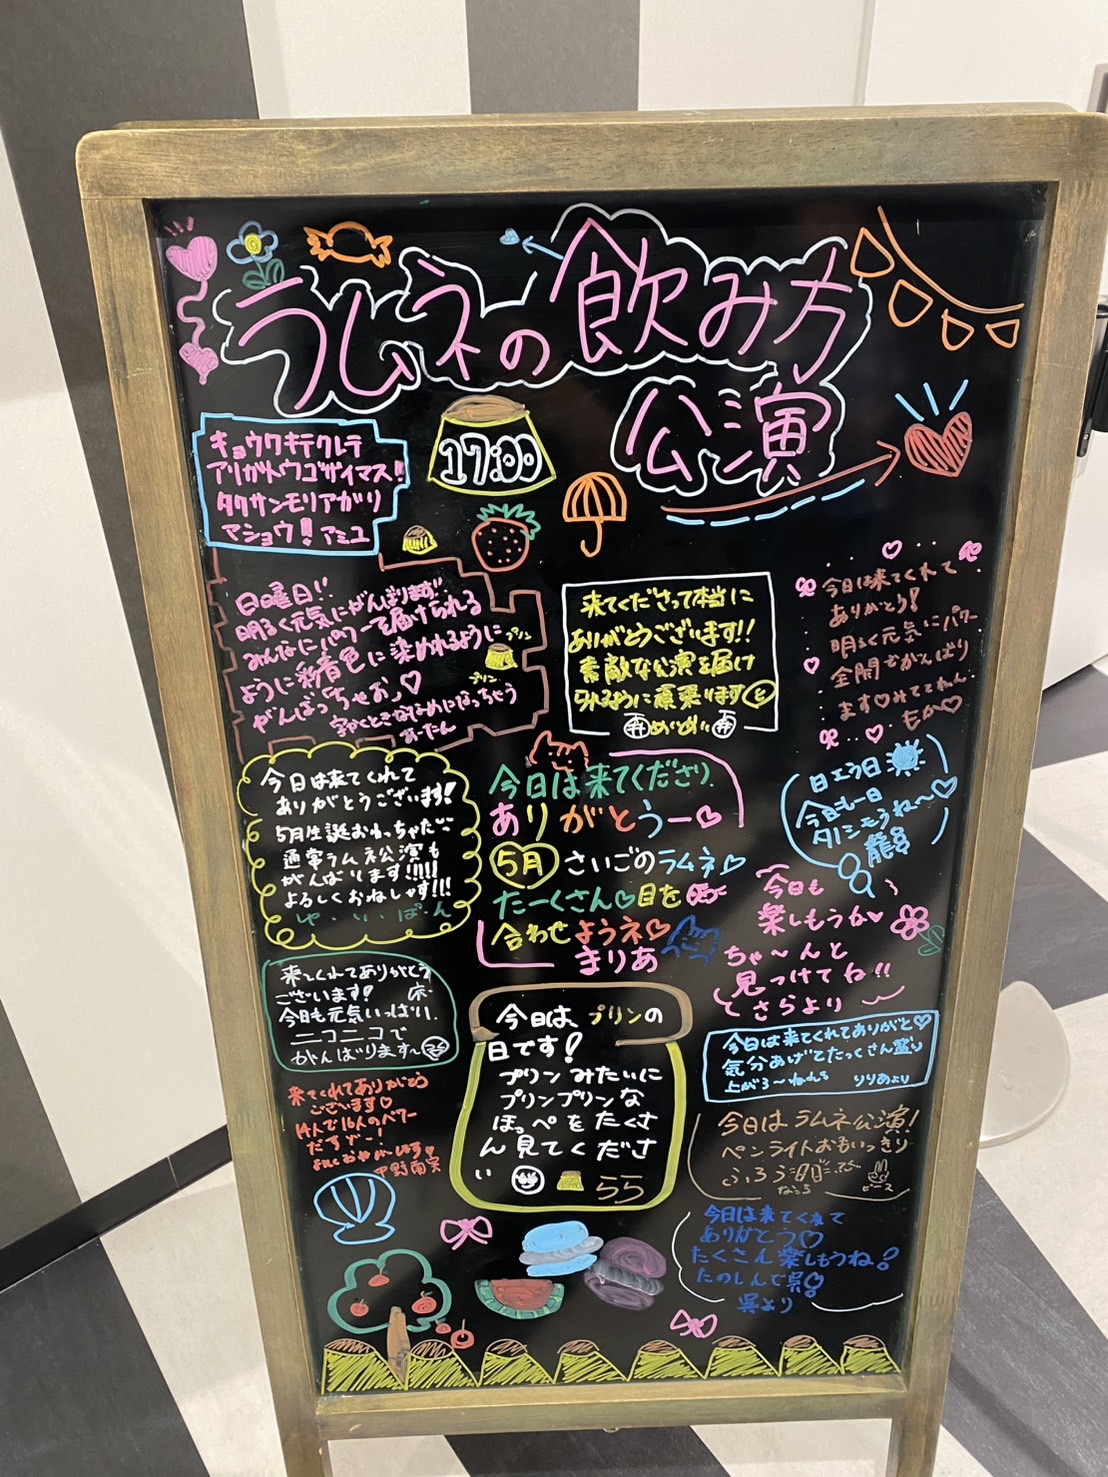 ラムネの飲み方
公演
17:00
キョウワキテクレテ
アリガトウゴザイマス!
タクサンモリアガリ
マショウ! アミユ
日曜日!!
明るく元気にがんばります!!
みんなにパワーを届けられる
ように彩音色に染めれるように
がんばっちゃお♡
プリン
プリン
あーたん
来てくださって本当に
ありがとうございます!!
素敵な公演を届け
られるように頑張ります
めいめい
今日は来てくれて
ありがとう!
明るく元気にパワー
全開でがんばり
ます♡みててねん
もか♡
今日は来てくれて
ありがとうございます!
5月生誕おわっちゃた
通常ラムネ公演も
がんばります!!!!!
よろしくおねしゃす!!!
ゆいぽん
今日は来てくださり
ありがとうー♡
5月 さいごのラムネ
たーくさん♡目を
合わせようネ♡
まりあ
日エう日
今日も一日
タノシモうね〜♡
今日も
楽しもうか♥
ちゃ〜んと
見つけてね!!
さらより
来てくれてありがとう
ございます!
今日も元気いっぱい、
ニコニコで
がんばります〜
今日は、プリンの
日です!
プリンみたいに
プリンプリンな
ほっぺをたくさ
ん見てくださ
い
らら
今日は来てくれてありがと♡
気分あげてたっくさん盛り
上がろ〜ねぇ りりあより
来てくれてありがとう
ございます♡
14人で16人のパワー
だすぞー!
中野南実
今日はラムネ公演!
ペンライトおもいっきり
ふろう
ピース
今日は来てくれて
ありがとう♡
たくさん楽しもうね!
たのしんで呉!
呉より